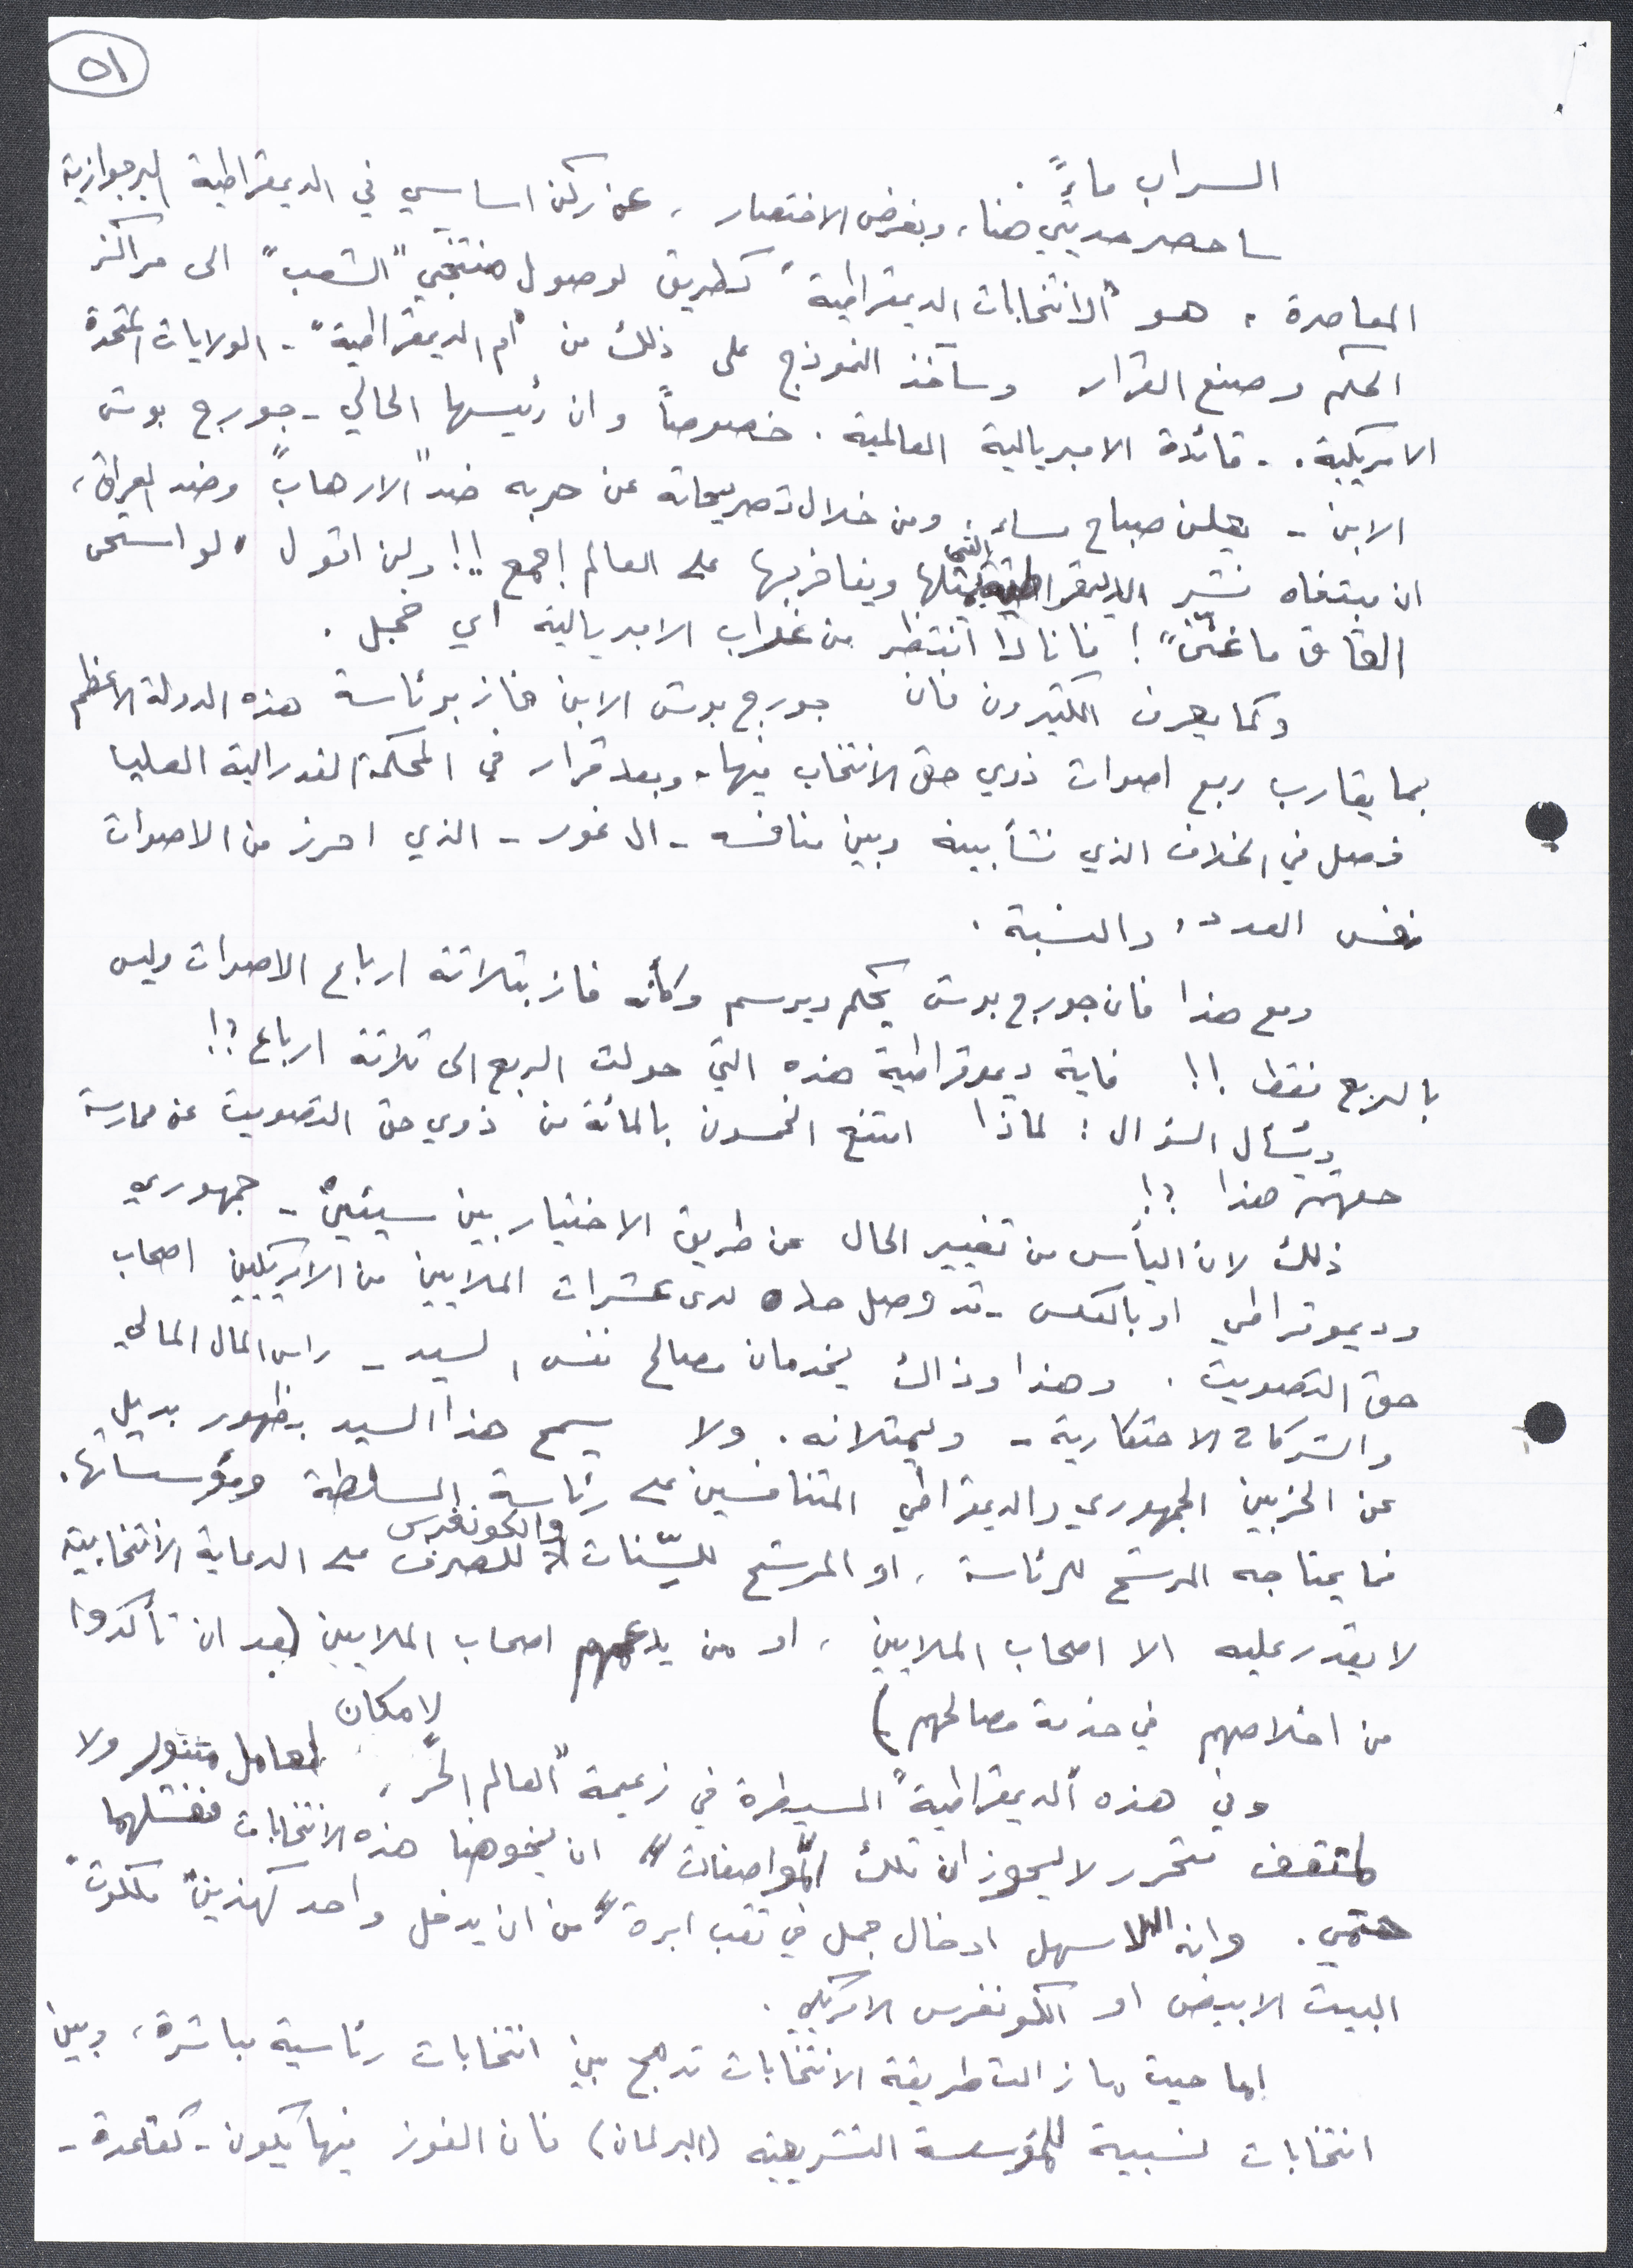 ٥١
السراب ماءً.
ساحصر حديثي هنا، وبغرض الاختصار، عن ركن اساسي في الديمقراطية البرجوازية
المعاصرة، هو "الانتخابات الديمقراطية" كطريق لوصول منتخبي "الشعب" الى مراكز
الحكم وصنع القرار. وسآخذ النموذج على ذلك من "ام الديمقراطية" - الولايات المتحدة
الامريكية. - قائدة الامبريالية العالمية. خصوصاً وان رئيسها الحالي - جورج بوش
الابن - يعلن صباح مساء، ومن خلال تصريحاته عن حربه ضد "الارهاب" وضد العراق،
ان مبتغاه نشر الديمقراطية التي يمثلها ويفاخر بها على العالم اجمع!! ولن اقول "لو استحى
القاق ما غنّى"! فانا لا انتظر من غراب الامبريالية اي خجل.
وكما يعرف الكثيرون فان جورج بوش الابن فاز برئاسة هذه الدولة الاعظم
بما يقارب ربع اصوات ذوي حق الانتخاب فيها، وبعد قرار في المحكمة الفدرالية العليا
فصل في الخلاف الذي نشأ بينه وبين منافسه - ال غور - الذي احرز من الاصوات
نفس العدد، والنسبة.
ومع هذا فان جورج بوش يحكم ويرسم وكأنه فاز بثلاثة ارباع الاصوات وليس
بالربع فقط!! فاية ديموقراطية هذه التي حولت الربع الى ثلاثة ارباع؟!
ويُسأل السؤال: لماذا امتنع الخمسون بالمائة من ذوي حق التصويت عن ممارسة
حقهم هذا؟!
ذلك لان اليأس من تغيير الحال عن طريق الاختيار بين سيئين - جمهوري
وديموقراطي او بالعكس - قد وصل حده لدى عشرات الملايين من الامريكيين اصحاب
حق التصويت. وهذا وذاك يخدمان مصالح نفس السيد - راس المال المالي
والشركات الاحتكارية - ويمثلانه. ولا يسمح هذا السيد بظهور بديل
عن الحزبين الجمهوري والديمقراطي المتنافسين على رئاسة السلطة ومؤسساتها.
فما يحتاجه المرشح للرئاسة، او المرشح للسّنات والكونغرس للصرف على الدعاية الانتخابية
لا يقدر عليه الا اصحاب الملايين، او من يدعمهم اصحاب الملايين (بعد ان تأكدوا
من اخلاصهم في خدمة مصالحهم)
وفي هذه "الديمقراطية" المسيطرة في زعيمة "العالم الحر"، لا مكان لعامل متنور ولا
لمثقف متحرر لا يحوزان تلك "المواصفات" ان يخوضا هذه الانتخابات ففشلهما
حتمي. وانه لاسهل ادخال جمل في ثقب ابرة" من ان يدخل واحد كهذين "ملكوت"
البيت الابيض او الكونغرس الامريكي.
اما حيث ما زالت طريقة الانتخابات تدمج بين انتخابات رئاسية مباشرة، وبين
انتخابات نسبية للمؤسسة التشريعية (البرلمان) فان الفوز فيها يكون - كقاعدة -